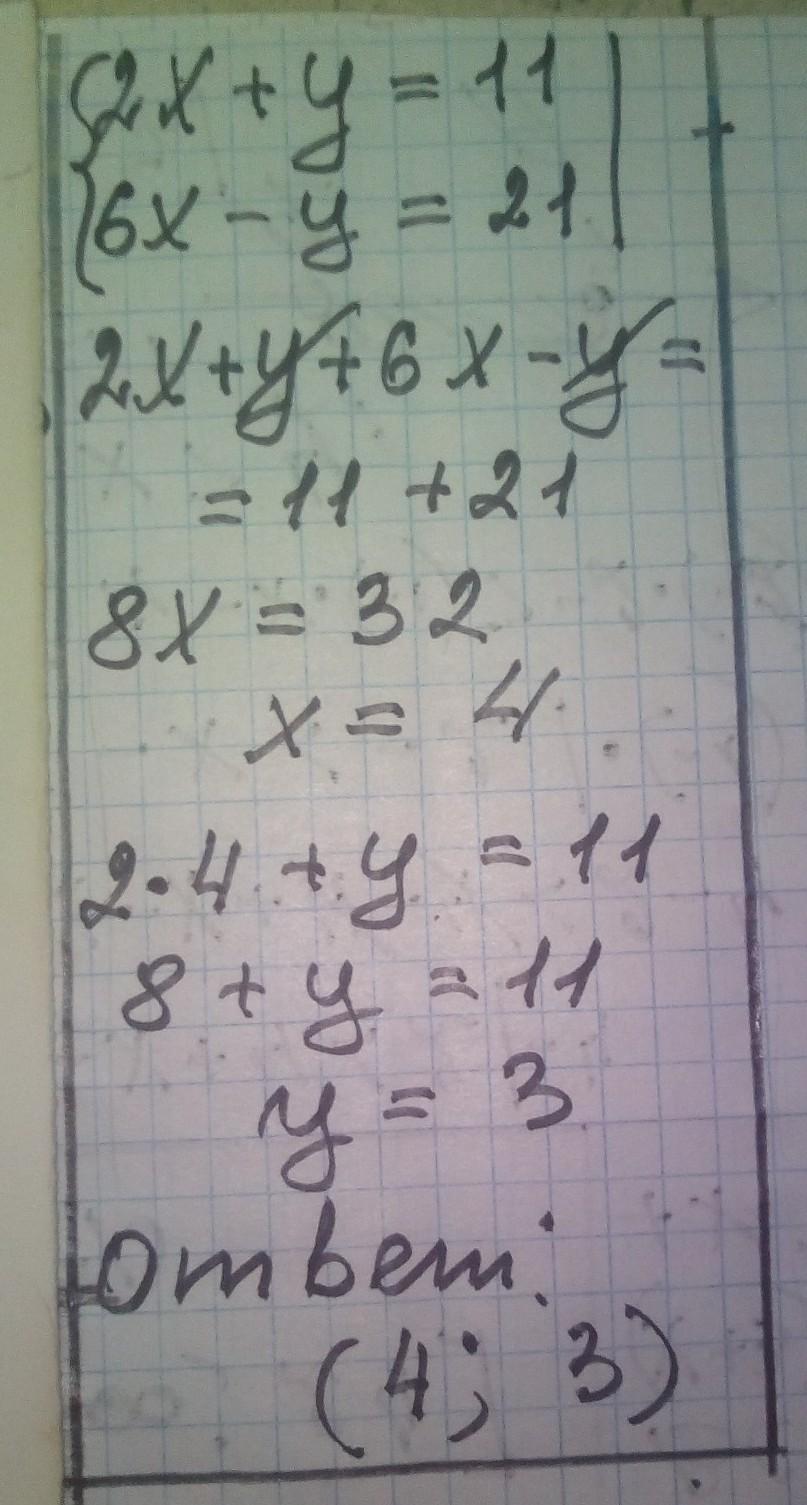 {2x + y = 11 | +
{6x - y = 21 |
2x + y + 6x - y =
= 11 + 21
8x = 32
x = 4
2·4 + y = 11
8 + y = 11
y = 3
Ответ:
(4; 3)